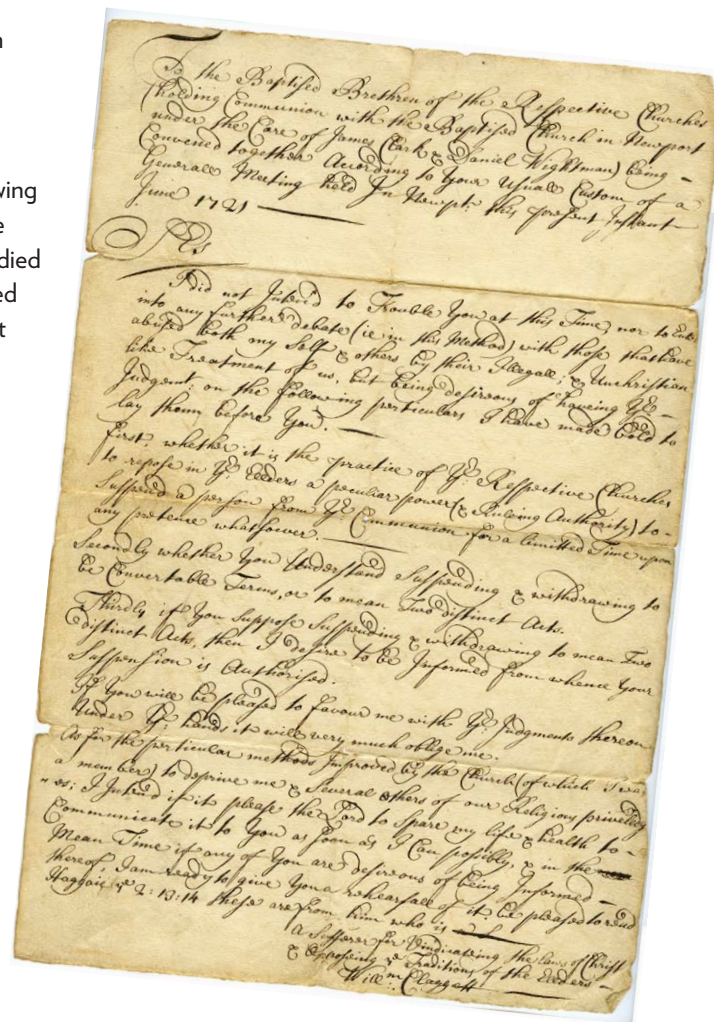 n
wing
e
died
ed
t
To the Baptised Brethren of the Respective Churches
(holding Communion with the Baptised Church in Newport
under the Care of James Clark & Daniel Wightman) being
Convened together According to Your Usuall Custom of a
Generall Meeting held In Newpt: this present Instant
June 1721
I did not Intend to Trouble You at this Time, nor to Enter
into any further debate (ie: in this Method) with those that have
abused both my Self & others by their Illegall, & Unchristian
like Treatment of us, but being desirous of haveing Ye:
Judgent: on the following particulars I have made bold to
lay them before You.
first: whether it is the practice of Ye: Respective Churches
to repose in Ye: Elders a peculiar power (& Ruleing Authority) to
Suspend a person from Ye: Communion for a limitted Time upon
any pretence whatsoever.
Secondly whether You Understand Suspending & withdrawing to
be Convertable Terms, or to mean Two distinct Acts.
Thirdly if You Suppose Suspending & withdrawing to mean Two
distinct Acts, then I desire to be Informed from whence Your
Suspension is Authorised.
If You will be pleased to favour me with Ye: Judgments thereon
Under Ye: hands it will very much oblige me.
As for the particular methods Improved by the Church (of which I was
a member) to deprive me & Several others of our Religious priviledg
=es; I Intend if it please the Lord to Spare my life & health to
Communicate it to You as Soon as I Can possibly, & in the
Mean Time if any of You are desireous of being Informed
thereof, I am ready to give You a rehearsall of it, be pleased to read
Haggai ye 2: 13: 14 these are from him who is
a Sufferer for Vindicateing the laws of Christ
& Opposeing ye Traditions of the Elders
Willm Claggett